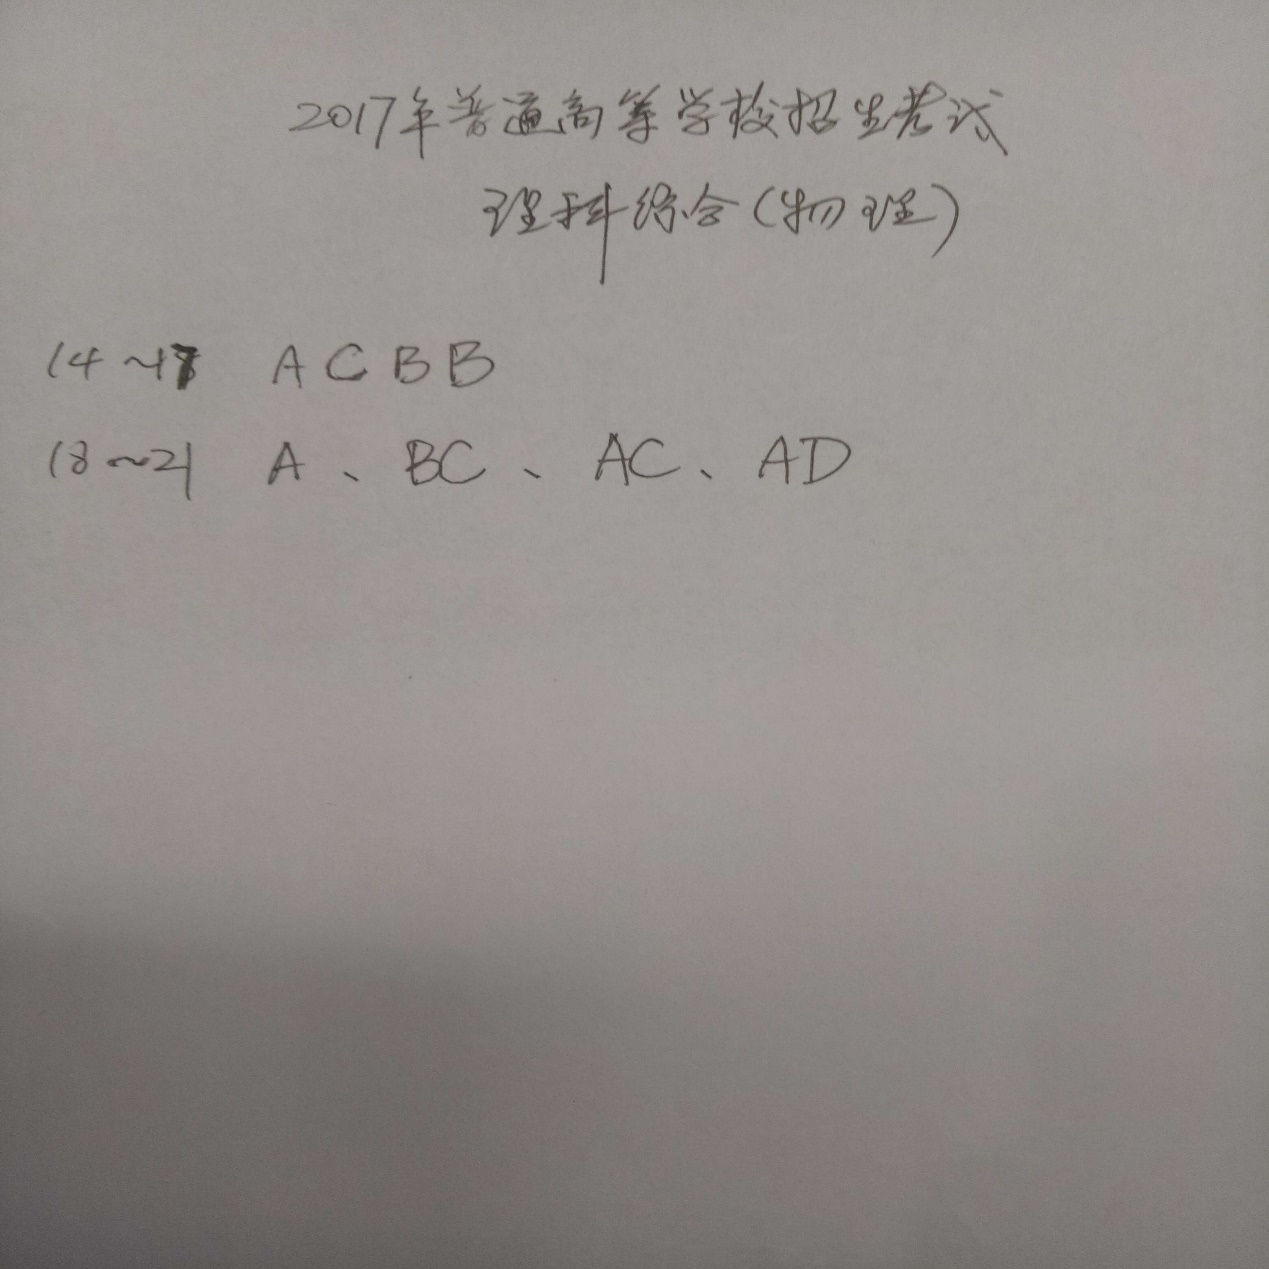 2017年普通高等学校招生考试
理科综合(物理)
14~17 A C B B
18~21 A、BC、AC、AD